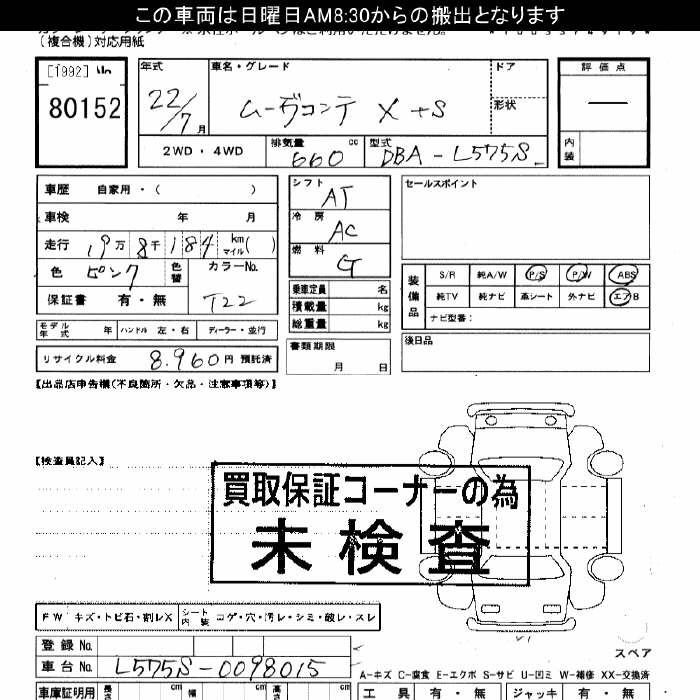 この車両は日曜日AM8:30からの搬出となります
(複合機)対応用紙
[1992]
80152
年式
22/7月
車名・グレード
ムーヴコンテ X+S
ドア
形状
評価点
—
内装
2WD・4WD
排気量
660 cc
型式
DBA-L575S
車歴 自家用・( )
車検 年 月
走行 19万8千184 km マイル( )
色 ピンク
色替
カラーNo.
T22
保証書 有・無
モデル年式 年 ハンドル 左・右 ディーラー・並行
リサイクル料金 8.960円 預託済
シフト AT
冷房 AC
燃料 G
乗車定員 名
積載量 kg
総重量 kg
書類期限
月 日
セールスポイント
装備品
S/R 純A/W P/S P/W ABS
純TV 純ナビ 革シート 外ナビ エアB
ナビ型番:
後日品
【出品店申告欄(不良箇所・欠品・注意事項等)】
【検査員記入】
買取保証コーナーの為
未検査
FW キズ・トビ石・割レX シート内装 コゲ・穴・汚レ・シミ・破レ・スレ
スペア
登録No.
車台No. L575S-0098015
A-キズ C-腐食 E-エクボ S-サビ U-凹ミ W-補修 XX-交換済
車庫証明用 長さ cm 幅 cm 高さ cm
工具 有・無 ジャッキ 有・無